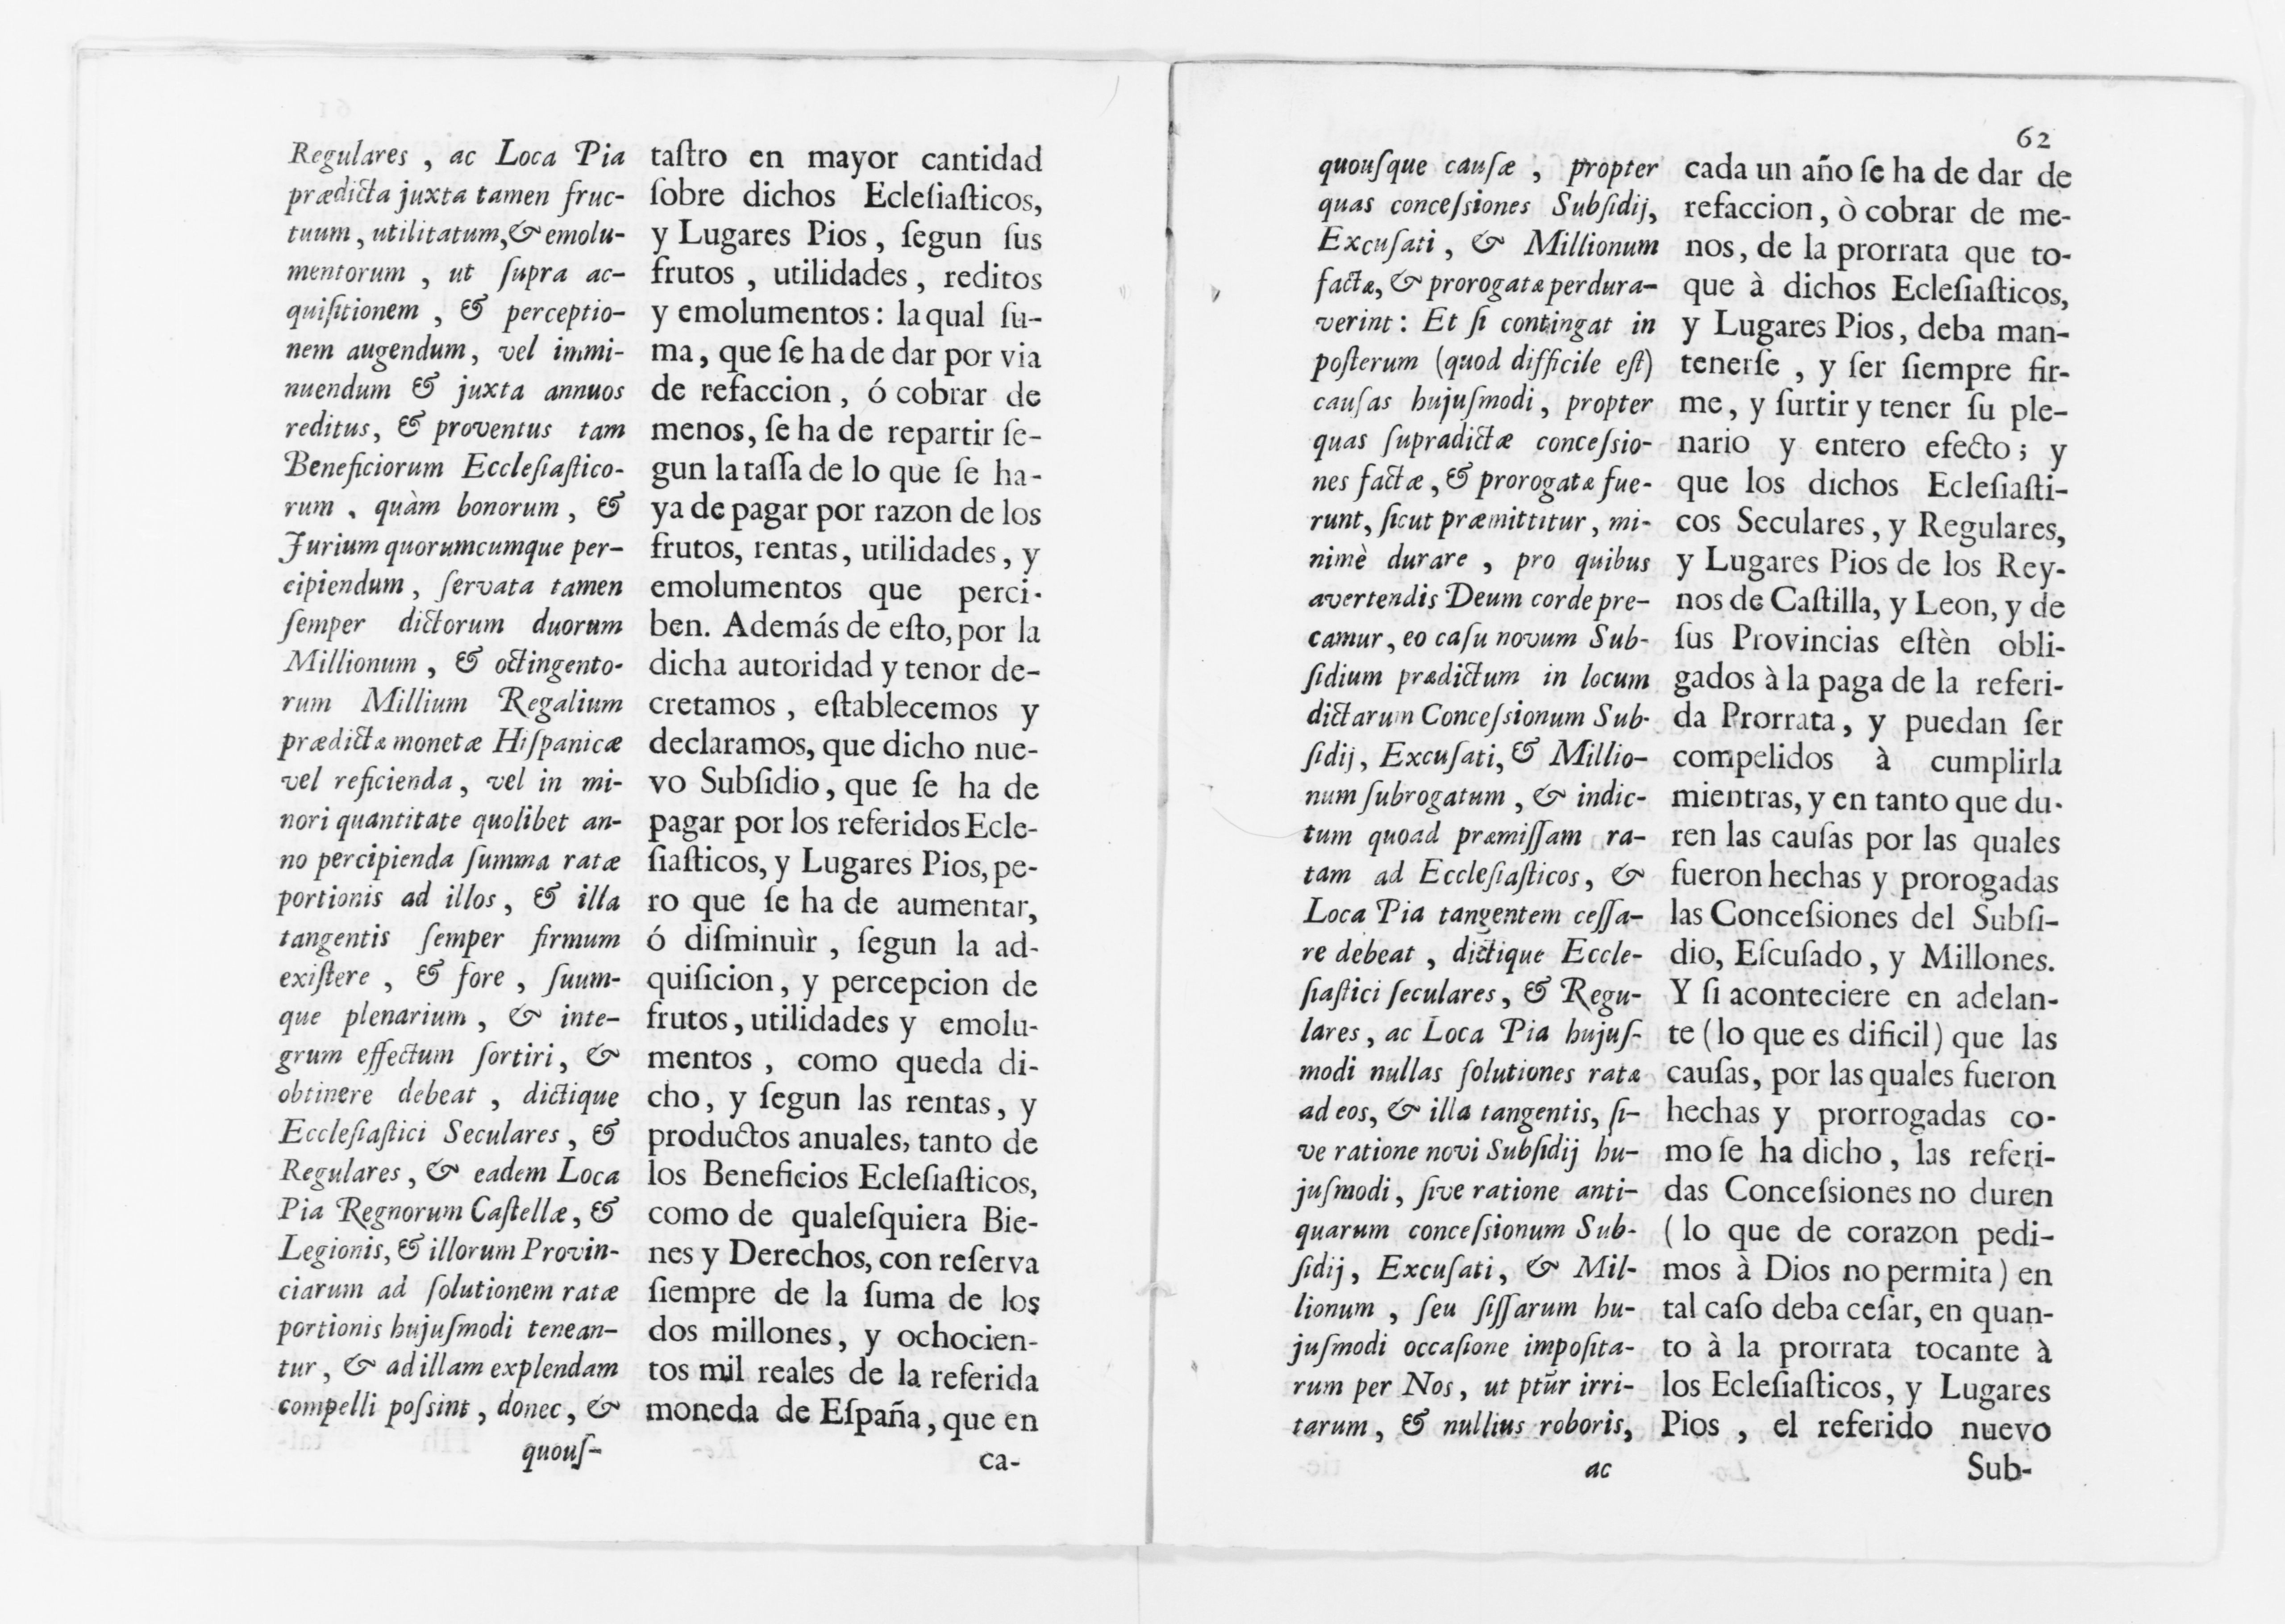 Regulares, ac Loca Pia
prædicta juxta tamen fruc-
tuum, utilitatum, & emolu-
mentorum, ut ſupra ac-
quiſitionem, & perceptio-
nem augendum, vel immi-
nuendum & juxta annuos
reditus, & proventus tam
Beneficiorum Eccleſiaſtico-
rum, quàm bonorum, &
Jurium quorumcumque per-
cipiendum, ſervata tamen
ſemper dictorum duorum
Millionum, & octingento-
rum Millium Regalium
prædictæ monetæ Hiſpanicæ
vel reficienda, vel in mi-
nori quantitate quolibet an-
no percipienda ſumma ratæ
portionis ad illos, & illa
tangentis ſemper firmum
exiſtere, & fore, ſuum-
que plenarium, & inte-
grum effectum ſortiri, &
obtinere debeat, dictique
Eccleſiaſtici Seculares, &
Regulares, & eadem Loca
Pia Regnorum Caſtellæ, &
Legionis, & illorum Provin-
ciarum ad ſolutionem ratæ
portionis hujuſmodi tenean-
tur, & ad illam explendam
compelli poſsint, donec, &
quouſ-
taſtro en mayor cantidad
ſobre dichos Ecleſiaſticos,
y Lugares Pios, ſegun ſus
frutos, utilidades, reditos
y emolumentos: la qual ſu-
ma, que ſe ha de dar por via
de refaccion, ó cobrar de
menos, ſe ha de repartir ſe-
gun la taſſa de lo que ſe ha-
ya de pagar por razon de los
frutos, rentas, utilidades, y
emolumentos que perci-
ben. Además de eſto, por la
dicha autoridad y tenor de-
cretamos, eſtablecemos y
declaramos, que dicho nue-
vo Subſidio, que ſe ha de
pagar por los referidos Ecle-
ſiaſticos, y Lugares Pios, pe-
ro que ſe ha de aumentar,
ó diſminuìr, ſegun la ad-
quiſicion, y percepcion de
frutos, utilidades y emolu-
mentos, como queda di-
cho, y ſegun las rentas, y
productos anuales, tanto de
los Beneficios Ecleſiaſticos,
como de qualeſquiera Bie-
nes y Derechos, con reſerva
ſiempre de la ſuma de los
dos millones, y ochocien-
tos mil reales de la referida
moneda de Eſpaña, que en
ca-
62
quouſque cauſæ, propter
quas conceſsiones Subſidij,
Excuſati, & Millionum
factæ, & prorogatæ perdura-
verint: Et ſi contingat in
poſterum (quod difficile eſt)
cauſas hujuſmodi, propter
quas ſupradictæ conceſsio-
nes factæ, & prorogatæ fue-
runt, ſicut præmittitur, mi-
nimè durare, pro quibus
avertendis Deum corde pre-
camur, eo caſu novum Sub-
ſidium prædictum in locum
dictarum Conceſsionum Sub-
ſidij, Excuſati, & Millio-
num ſubrogatum, & indic-
tum quoad præmiſſam ra-
tam ad Eccleſiaſticos, &
Loca Pia tangentem ceſſa-
re debeat, dictique Eccle-
ſiaſtici ſeculares, & Regu-
lares, ac Loca Pia hujuſ-
modi nullas ſolutiones ratæ
ad eos, & illa tangentis, ſi-
ve ratione novi Subſidij hu-
juſmodi, ſive ratione anti-
quarum conceſsionum Sub-
ſidij, Excuſati, & Mil-
lionum, ſeu ſiſſarum hu-
juſmodi occaſione impoſita-
rum per Nos, ut ptũr irri-
tarum, & nullius roboris,
ac
cada un año ſe ha de dar de
refaccion, ò cobrar de me-
nos, de la prorrata que to-
que à dichos Ecleſiaſticos,
y Lugares Pios, deba man-
tenerſe, y ſer ſiempre fir-
me, y ſurtir y tener ſu ple-
nario y entero efecto; y
que los dichos Ecleſiaſti-
cos Seculares, y Regulares,
y Lugares Pios de los Rey-
nos de Caſtilla, y Leon, y de
ſus Provincias eſtèn obli-
gados à la paga de la referi-
da Prorrata, y puedan ſer
compelidos à cumplirla
mientras, y en tanto que du-
ren las cauſas por las quales
fueron hechas y prorogadas
las Conceſsiones del Subſi-
dio, Eſcuſado, y Millones.
Y ſi aconteciere en adelan-
te (lo que es dificil) que las
cauſas, por las quales fueron
hechas y prorrogadas co-
mo ſe ha dicho, las referi-
das Conceſsiones no duren
(lo que de corazon pedi-
mos à Dios no permita) en
tal caſo deba ceſar, en quan-
to à la prorrata tocante à
los Ecleſiaſticos, y Lugares
Pios, el referido nuevo
Sub-